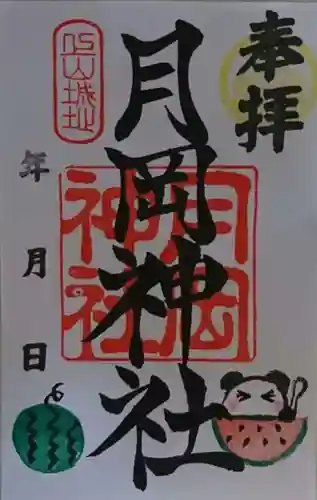 奉拝
月岡神社
月岡神社
山城址
年月日